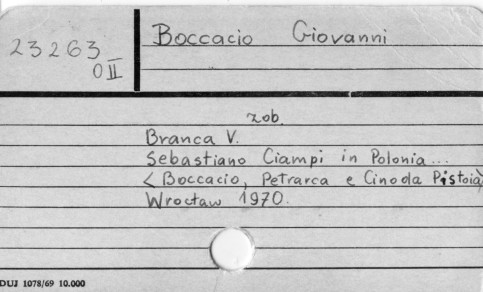 Boccacio Giovanni
23263
OII
zob.
Branca V.
Sebastiano Ciampi in Polonia...
< Boccacio, Petrarca e Cino da Pistoia>
Wrocław 1970.
DUJ 1078/69 10.000